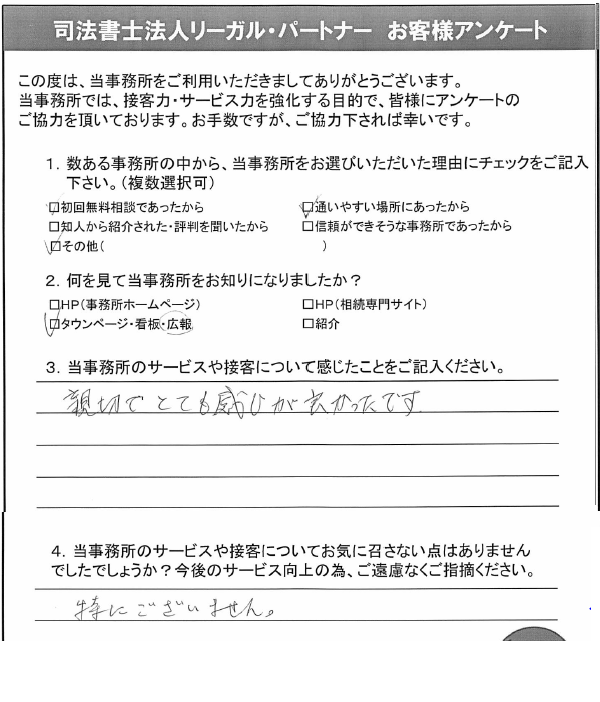 司法書士法人リーガル・パートナー お客様アンケート
この度は、当事務所をご利用いただきましてありがとうございます。
当事務所では、接客力・サービス力を強化する目的で、皆様にアンケートの
ご協力を頂いております。お手数ですが、ご協力下されば幸いです。
1. 数ある事務所の中から、当事務所をお選びいただいた理由にチェックをご記入
下さい。（複数選択可）
□初回無料相談であったから □通いやすい場所にあったから
□知人から紹介された・評判を聞いたから □信頼ができそうな事務所であったから
□その他( )
2. 何を見て当事務所をお知りになりましたか？
□HP（事務所ホームページ） □HP（相続専門サイト）
□タウンページ・看板・広報 □紹介
3. 当事務所のサービスや接客について感じたことをご記入ください。
親切でとても感じが良かったです
4. 当事務所のサービスや接客についてお気に召さない点はありません
でしたでしょうか？今後のサービス向上の為、ご遠慮なくご指摘ください。
特にございません。